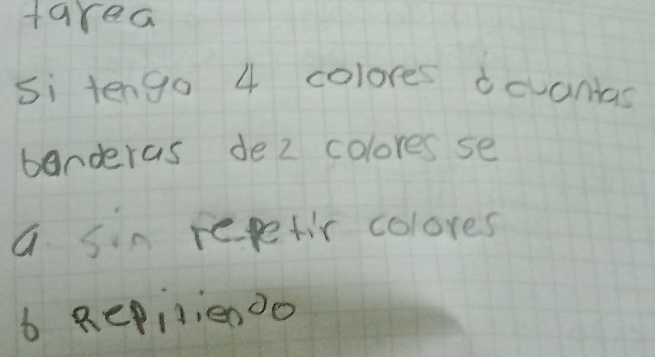 tarea
si tengo 4 colores ¿cuantas
banderas de 2 colores se
a. sin repetir colores
b Repitiendo